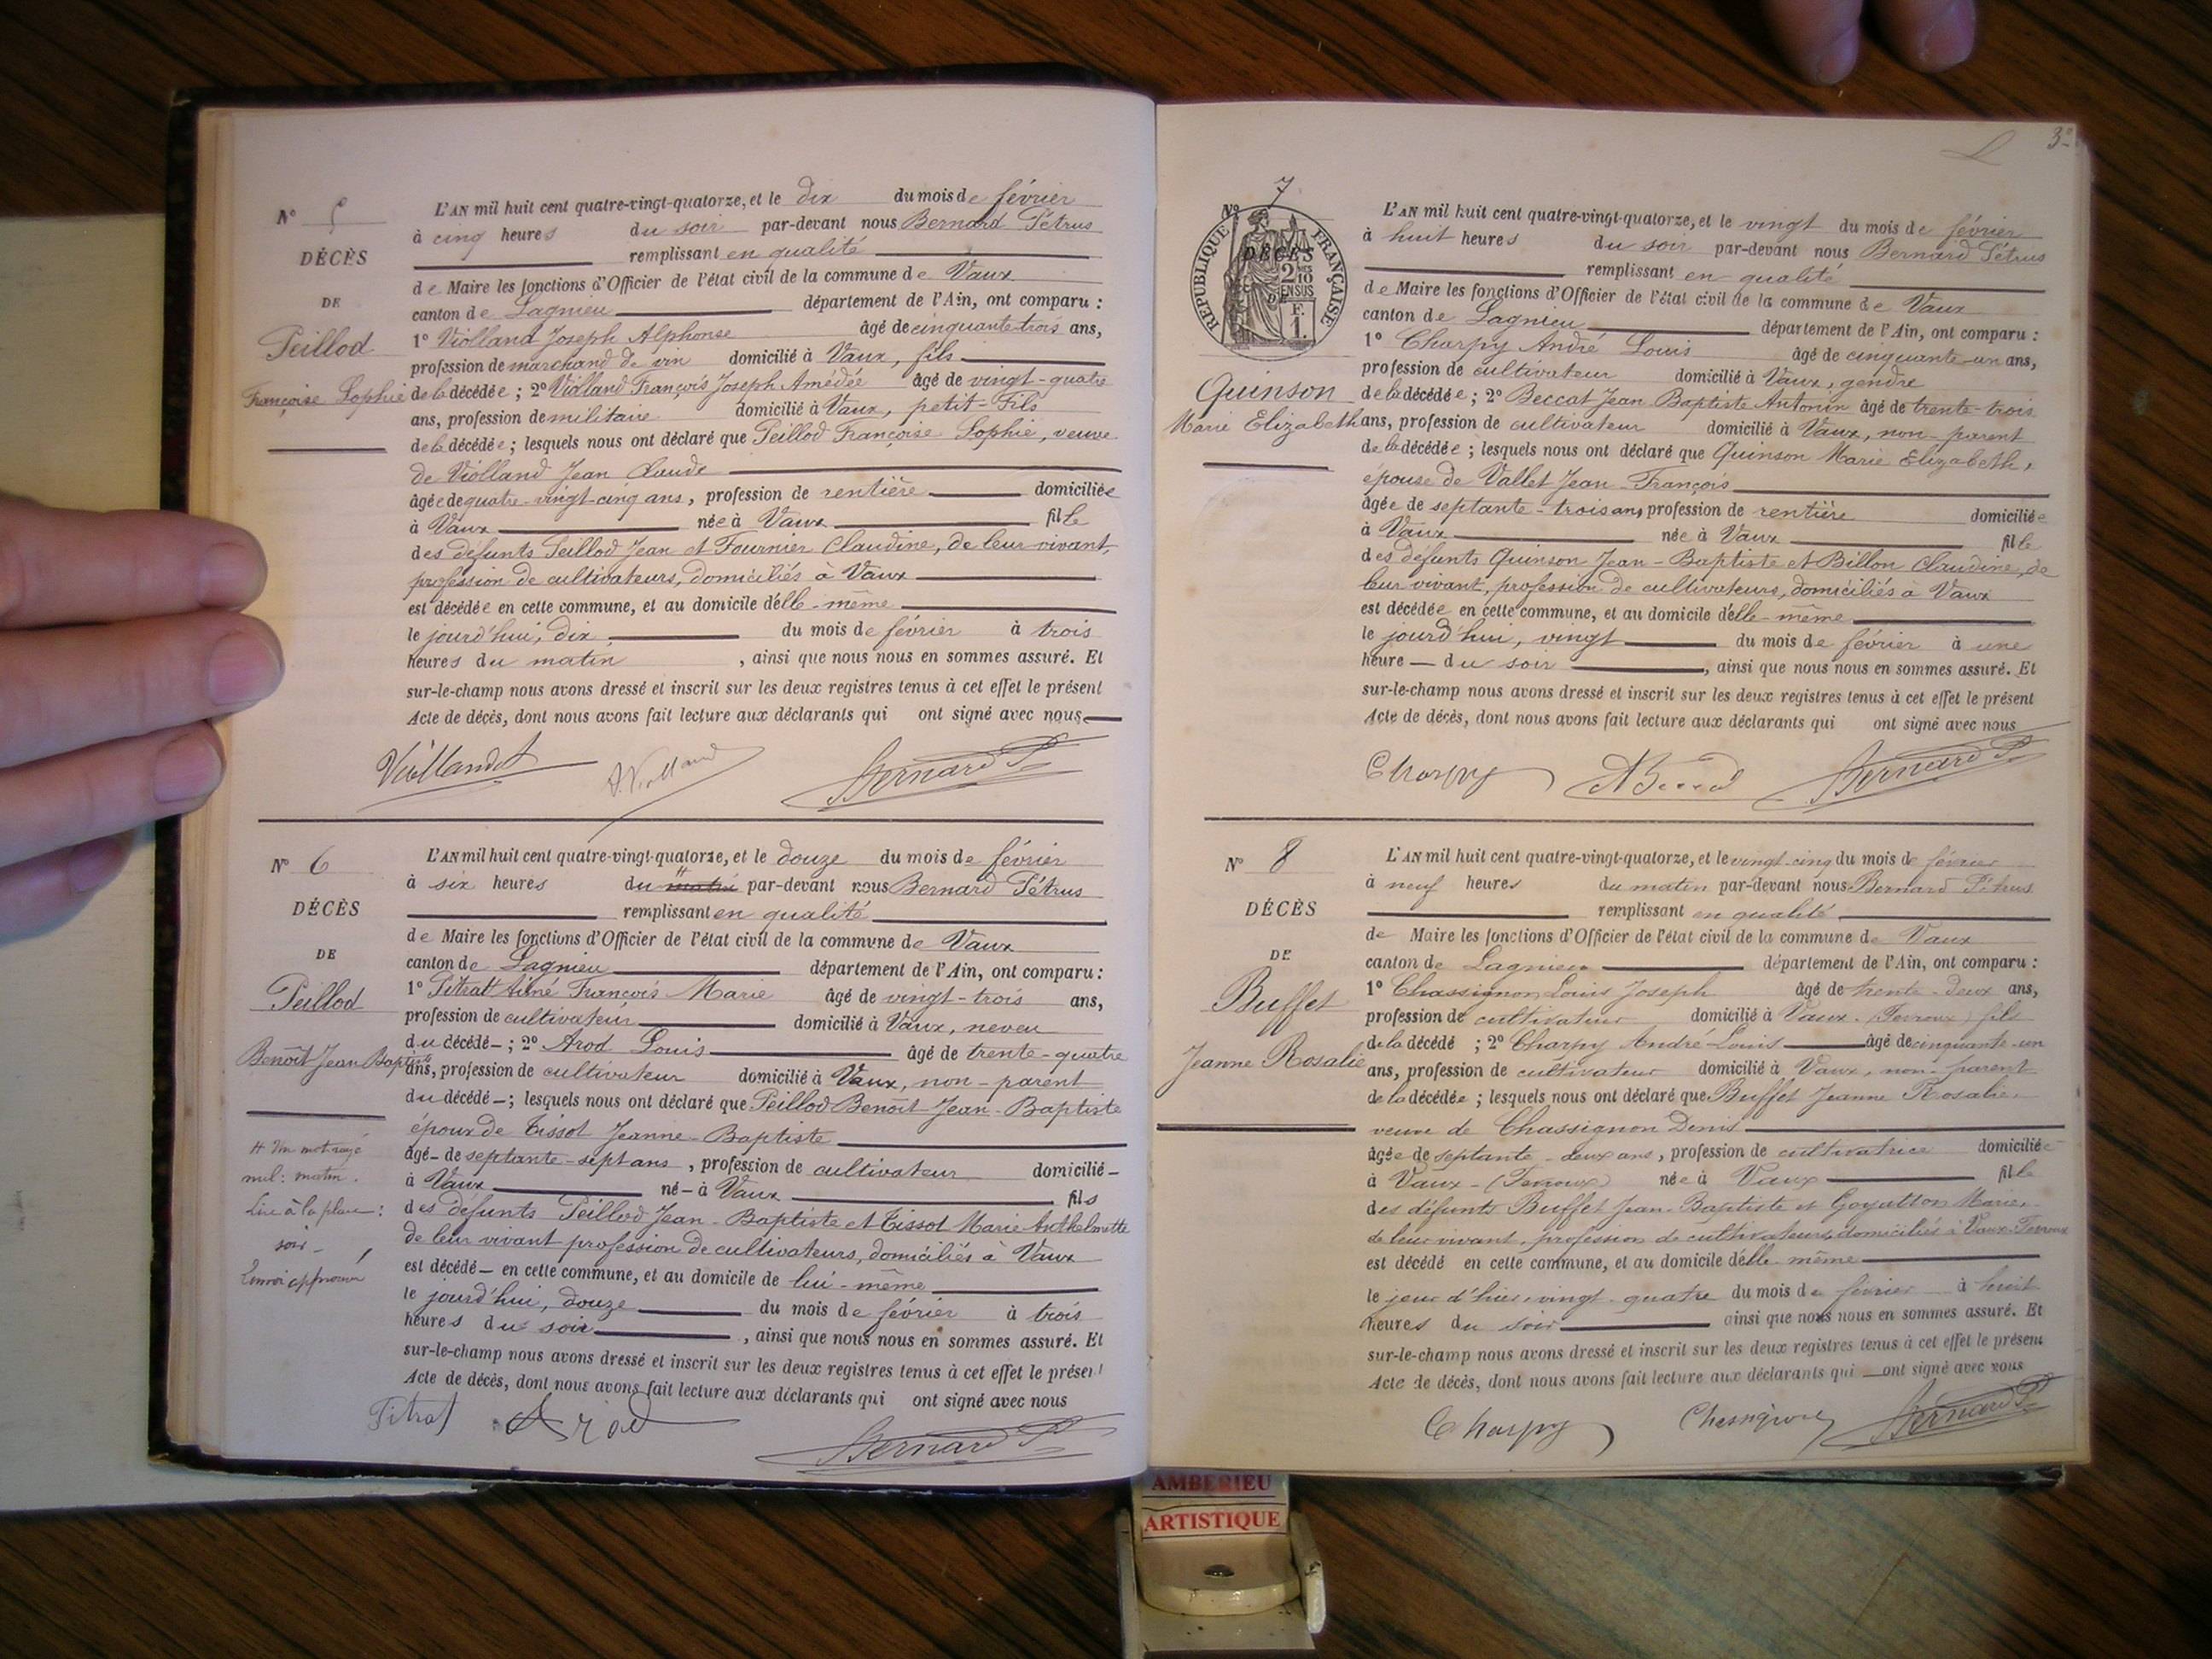 N° 5
DÉCÈS
DE
Peillod
Françoise Sophie
L'AN mil huit cent quatre-vingt-quatorze, et le dix du mois de février
à cinq heures du soir par-devant nous Bernard Pétrus
remplissant en qualité
de Maire les fonctions d'Officier de l'état civil de la commune de Vaux
canton de Lagnieu département de l'Ain, ont comparu :
1° Violland Joseph Alphonse âgé de cinquante-trois ans,
profession de marchand de vin domicilié à Vaux, fils
de la décédée ; 2° Violland François Joseph Amédée âgé de vingt-quatre
ans, profession de militaire domicilié à Vaux, petit-fils
de la décédée ; lesquels nous ont déclaré que Peillod Françoise Sophie, veuve
de Violland Jean Claude
âgée de quatre-vingt-cinq ans, profession de rentière domiciliée
à Vaux née à Vaux fille
des défunts Peillod Jean et Fournier Claudine, de leur vivant,
profession de cultivateurs, domiciliés à Vaux
est décédée en cette commune, et au domicile d'elle-même
le jourd'hui, dix du mois de février à trois
heures du matin , ainsi que nous nous en sommes assuré. Et
sur-le-champ nous avons dressé et inscrit sur les deux registres tenus à cet effet le présent
Acte de décès, dont nous avons fait lecture aux déclarants qui ont signé avec nous
Violland A. Violland Bernard P.
N° 6
DÉCÈS
DE
Peillod
Benoît Jean Baptiste
# Un mot rayé
nul : matin.
Lire à la place :
soir
Renvoi approuvé
L'AN mil huit cent quatre-vingt-quatorze, et le douze du mois de février
à six heures du # matin par-devant nous Bernard Pétrus
remplissant en qualité
de Maire les fonctions d'Officier de l'état civil de la commune de Vaux
canton de Lagnieu département de l'Ain, ont comparu :
1° Pitrat Aimé François Marie âgé de vingt-trois ans,
profession de cultivateur domicilié à Vaux, neveu
du décédé ; 2° Arod Louis âgé de trente-quatre
ans, profession de cultivateur domicilié à Vaux, non-parent
du décédé ; lesquels nous ont déclaré que Peillod Benoît Jean-Baptiste
époux de Tissot Jeanne-Baptiste
âgé de septante-sept ans, profession de cultivateur domicilié
à Vaux né à Vaux fils
des défunts Peillod Jean-Baptiste et Tissot Marie Anthelmette
de leur vivant profession de cultivateurs, domiciliés à Vaux
est décédé en cette commune, et au domicile de lui-même
le jourd'hui, douze du mois de février à trois
heures du soir , ainsi que nous nous en sommes assuré. Et
sur-le-champ nous avons dressé et inscrit sur les deux registres tenus à cet effet le présent
Acte de décès, dont nous avons fait lecture aux déclarants qui ont signé avec nous
Pitrat Arod Bernard P.
3
N° 7
RÉPUBLIQUE FRANÇAISE
DÉCÈS
2 10
EN SUS
F.
1.
DE
Quinson
Marie Elizabeth
L'AN mil huit cent quatre-vingt-quatorze, et le vingt du mois de février
à huit heures du soir par-devant nous Bernard Pétrus
remplissant en qualité
de Maire les fonctions d'Officier de l'état civil de la commune de Vaux
canton de Lagnieu département de l'Ain, ont comparu :
1° Charpy André Louis âgé de cinquante-un ans,
profession de cultivateur domicilié à Vaux, gendre
de la décédée ; 2° Beccat Jean Baptiste Antonin âgé de trente-trois
ans, profession de cultivateur domicilié à Vaux, non-parent
de la décédée ; lesquels nous ont déclaré que Quinson Marie Elizabeth,
épouse de Vallet Jean-François
âgée de septante-trois ans, profession de rentière domiciliée
à Vaux née à Vaux fille
des défunts Quinson Jean-Baptiste et Billon Claudine, de
leur vivant, profession de cultivateurs, domiciliés à Vaux
est décédée en cette commune, et au domicile d'elle-même
le jourd'hui, vingt du mois de février à une
heure du soir , ainsi que nous nous en sommes assuré. Et
sur-le-champ nous avons dressé et inscrit sur les deux registres tenus à cet effet le présent
Acte de décès, dont nous avons fait lecture aux déclarants qui ont signé avec nous
Charpy Bernard P.
N° 8
DÉCÈS
DE
Buffet
Jeanne Rosalie
L'AN mil huit cent quatre-vingt-quatorze, et le vingt-cinq du mois de février
à neuf heures du matin par-devant nous Bernard Pétrus
remplissant en qualité
de Maire les fonctions d'Officier de l'état civil de la commune de Vaux
canton de Lagnieu département de l'Ain, ont comparu :
1° Chassignon Louis Joseph âgé de trente-deux ans,
profession de cultivateur domicilié à Vaux (Fevroux) fils
de la décédé ; 2° Charpy André-Louis âgé de cinquante-un
ans, profession de cultivateur domicilié à Vaux, non-parent
de la décédée ; lesquels nous ont déclaré que Buffet Jeanne Rosalie,
veuve de Chassignon Denis
âgée de septante-deux ans, profession de cultivatrice domiciliée
à Vaux-(Fevroux) née à Vaux fille
des défunts Buffet Jean-Baptiste et Marie,
de leur vivant, profession de cultivateurs, domiciliés à Vaux-Fevroux
est décédé en cette commune, et au domicile d'elle-même
le jour d'hier, vingt-quatre du mois de février à huit
heures du soir ainsi que nous nous en sommes assuré. Et
sur-le-champ nous avons dressé et inscrit sur les deux registres tenus à cet effet le présent
Acte de décès, dont nous avons fait lecture aux déclarants qui ont signé avec nous
Charpy Chassignon Bernard P.
AMBERIEU
ARTISTIQUE